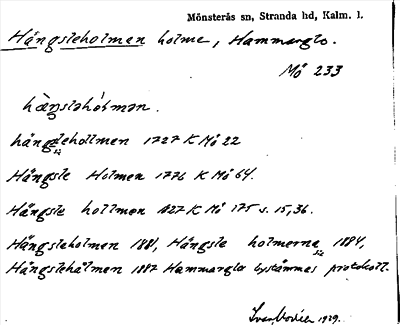 Mönsterås sn, Stranda hd, Kalm. l.
Hängsleholmen holme, Hammarglo.
Mö 233
hängsleholmen 1727 K Mö 22
Hängsle Holmen 1776 K Mö 64.
Hängsle hollmen 1827 K Mö 175 s. 15, 36.
Hängsleholmen 1881, Hängsle holmerna 1884,
Hängslehålmen 1887 Hammarglo bystämmas protokoll.
1929.